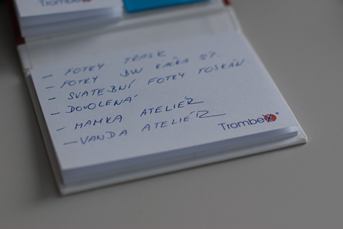 Trombe
- FOTKY TRASK
- FOTKY BW KAČKA 57.
- SVATEBNÍ FOTKY TOSKÁN
- DOVOLENÁ
- MAMKA ATELIÉR
- VANDA ATELIÉR
Trombe